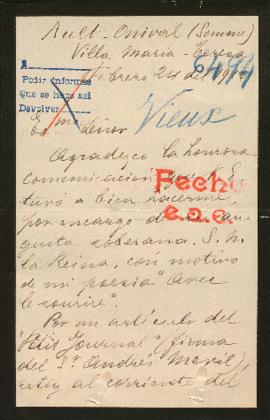 Ault-Onival (Somme)
Villa Maria-Teresa
6494
A
Pedir informes
Que se haga así
Devolver
Febrero 24 del
Vieux
Exmo Señor
Agradezco la honrosa
comunicacion que
tuvo a bien hacerme,
Fecho
e.a.e.
por encargo de
gusta soberana. S. M.
la Reina, con motivo
de mi poesía "Avec
le sourire".
Por un artículo del
"Petit Journal" (firma
del Sr. Andrés
estoy al corriente del